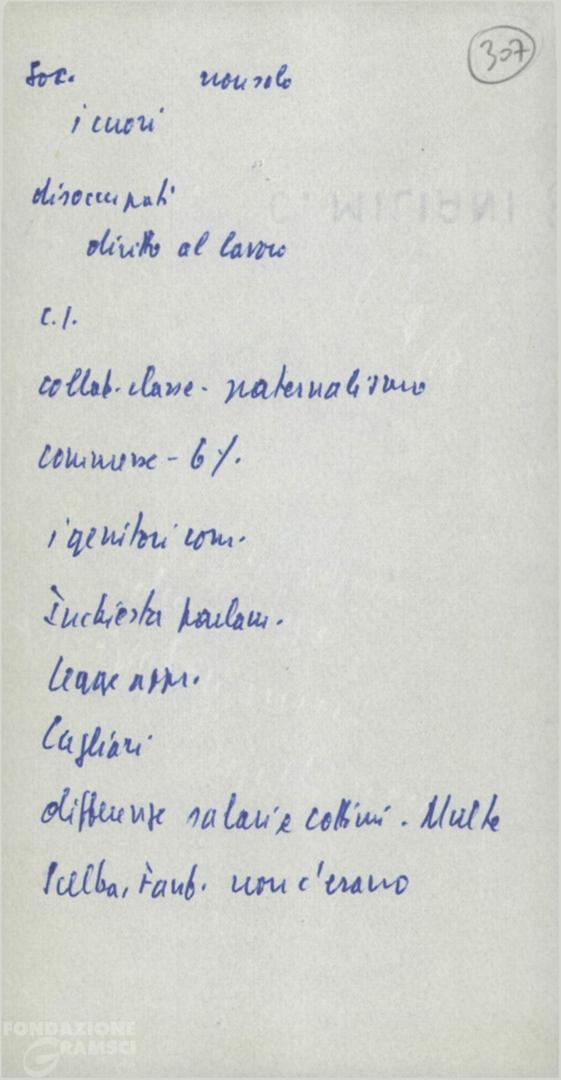 307
Soc. non solo
i cuori
disoccupati
diritto al lavoro
C.I.
collab. classe - paternalismo
commesse - 6%.
i genitori com.
Inchiesta parlam.
legge appr.
Cagliari
differenze salari e cottimi. Multe
Scelba, Fanf. non c'erano
FONDAZIONE
GRAMSCI